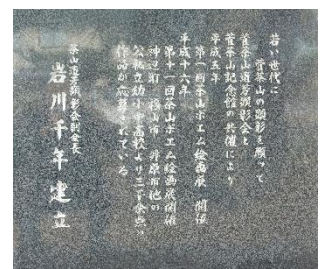 若い世代に
菅茶山の顕彰を願って
菅茶山遺芳顕彰会と
菅茶山記念館の共催により
平成五年
第一回茶山ポエム絵画展 開催
平成十六年
第十一回茶山ポエム絵画展開催
神辺町 福山市 井原市他の
公私立幼小中高校より三千余点の
作品が応募されている
茶山遺芳顕彰会副会長
岩川千年建立